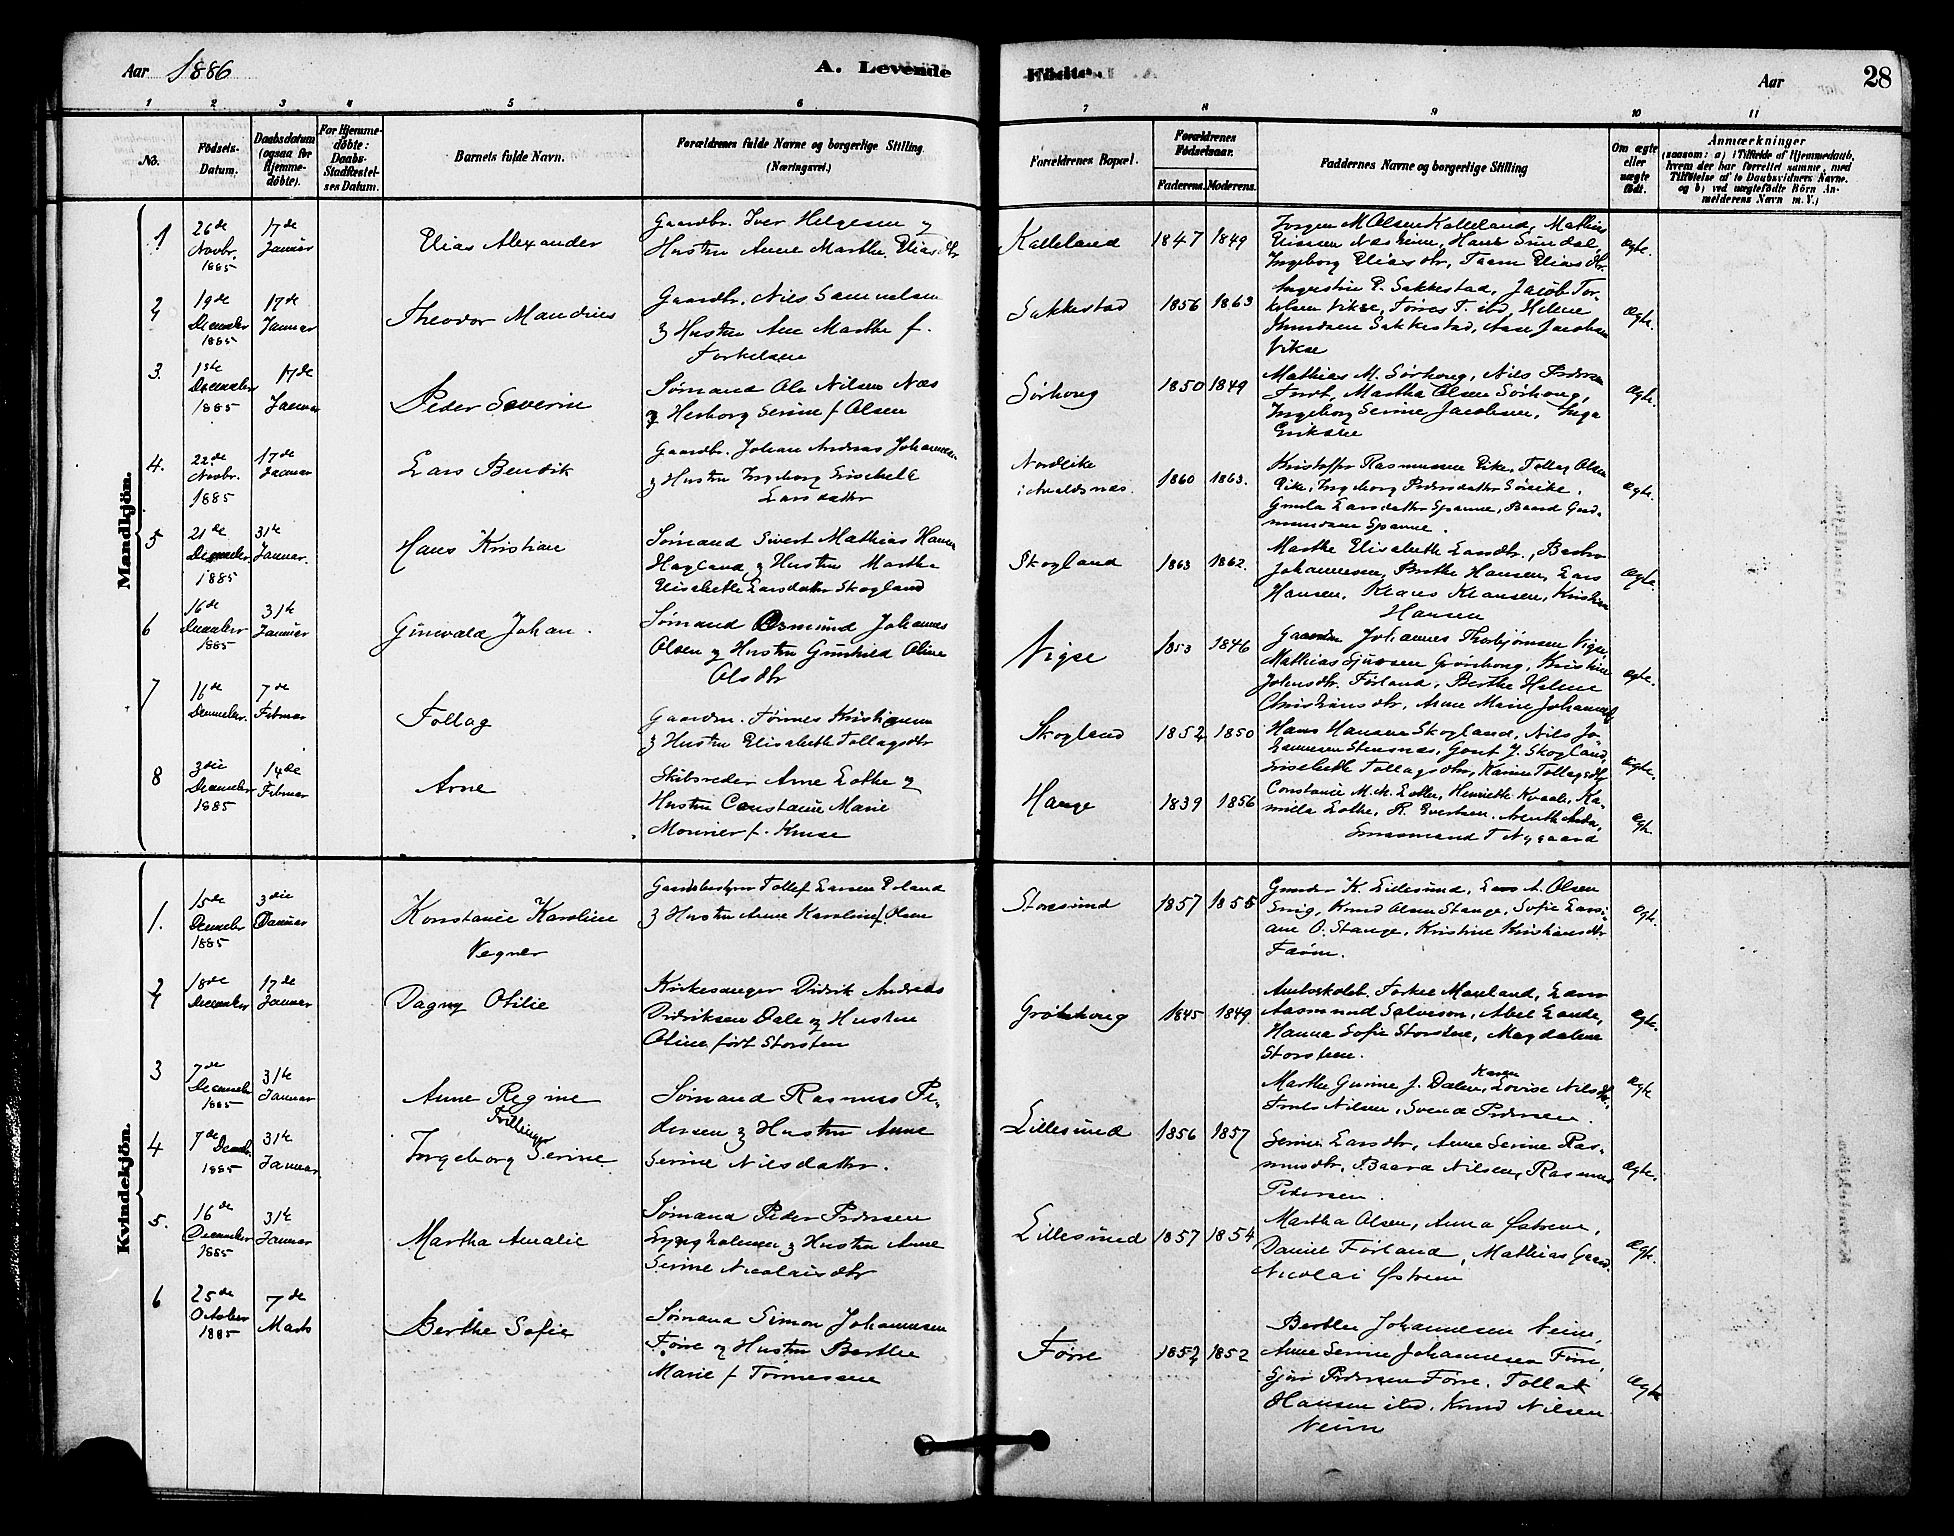 Aar 1886
A. Levende
Fødte.
Aar
28
1 2 3 4 5 6 7 8 9 10 11
No.
Fødsels-
Datum.
Daabsdatum
(ogsaa for
Hjemme-
døbte).
For Hjemme-
døbte:
Daabs-
Stadfæstel-
ses Datum.
Barnets fulde Navn.
Forældrenes fulde Navne og borgerlige Stilling
(Næringsvei.)
Forældrenes Bopæl.
Forældrenes
Fødselsaar.
Faderens. Moderens.
Faddernes Navne og borgerlige Stilling
Om ægte
eller
uægte
født.
Anmærkninger
(saasom: a) i Tilfælde af Hjemmedaab,
hvem der har forrettet samme, med
Tilføielse af to Daabsvidners Navne.
og b) ved uægtefødte Börn An-
melderens Navn m. V.)
Mandkjön.
1
26de
Novbr.
1885
17de
Januar
Elias Alexander
Gaardbr. Iver Helgesen og
Hustru Anne Marthe Eliasdtr
Kalleland
1847 1849
Jørgen M Olsen Kalleland, Mathias
Eliasen Næsheim, Hans Sundal,
Ingeborg Eliasdtr,
Ægte.
2
19de
December
1885
17de
Januar
Theodor Mandrus
Gaardbr. Nils Samuelsen
og Hustru Ane Marthe f.
Torkelsen
Sakkestad
1856 1863
P. Sakkestad, Jacob Tor-
kelsen Vikse, Tørres T. ibd, Helene
Knudsen Sakkestad, Jacobsen
Vikse
Ægte.
3.
1ste
December
1885
17de
Januar
Peder Severin
Sømand Ole Nilsen Næs
og Herborg Serine f Olsen
Sørhoug
1850 1849
Mathias M. Sørhoug, Nils Pedersen
Martha Olsen Sørhoug,
Ingeborg Serine Jacobsen, Inga
Eriksen
Ægte.
4.
22de
Novbr.
1885
17de
Januar
Lars Bendik
Gaardbr. Johan Andreas Johannesen
og Hustru Ingeborg
Larsdatter
Nordeike
i Avaldsnæs.
1860 1863.
Kristoffer Rasmussen Eike, Tollag Olsen
Eike, Ingeborg Pedersdatter Søreike,
Larsdatter Spanne, Baard Gud-
mundsen Spanne.
Ægte.
5
21de
December
1885
31te
Januar.
Hans Kristian
Sømand Sivert Mathias Hansen
Hagland og Hustru Martha
Elisabeth Larsdatter Skogland
Skogland
1863 1862.
Marthe Elisabeth Larsdtr,
Johannesen, Berthe Hansen, Lars
Hansen, Klaus Klausen, Kristian
Hansen
Ægte.
6
16de
December
1885
31te
Januar
Gunvald Johan.
Sømand Osmund Johannes
Olsen og Hustru Gunhild Oline
Olsdtr
Vigse
1853 1846
Johannes Thorbjørnsen Vigse,
Mathias Sjursen Grønhoug, Kristine
Johnsdtr. Førland, Berthe Helene
Christiansdtr, Anne Marie Johannesd
Ægte.
7
16de
December.
7de
Februar
Tollag
Gaardm. Tønnes Kristiansen
og Hustru Elisabeth Tollagsdtr
Skogland
1852 1850
Hans Hansen Skogland, Nils Jo-
hannesen Stensnæs, Gout J. Skogland,
Liselbeth Tollagsdtr, Karine Tollagsdtr
Ægte.
8
3die
December
1885
14de
Februar
Arne
Skibsreder Arne Lothe og
Hustru Constance Marie
Mourier f. Kruse
Hauge
1839 1856
Constance M. M. Lothe, Henriette Kvaale, Ka-
milla Lothe, R. Evertsen,
T Nygaard
Ægte.
Kvindekjön.
1.
15de
December
1885
3die
Januar
Konstance Karoline
Vegner
Gaardbestyrer Tollef Larsen Roland
og Hustru Anne Karoline f. Olsen
Storesund
1857 1855
Gunder K. Lillesund, Lars A. Olsen
Snig, Knud Olsen Stange, Sofie Larsi-
ane O. Stange, Kristine Kristiansdtr
Ægte.
2
18de
December
17de
Januar
Dagny Otilie
Kirkesanger Didrik Andreas
Didriksen Dale og Hustru
Oline født Storsten
Grønhoug
1845 1849.
Amtsskolel. Torkel Mauland, Lars
Aasmund Salveson, Abel Lande,
Hanna Sofie Storsten, Magdalene
Storsteen.
Ægte.
3
7de
December
1885
31te
Januar
Anne Regine
Tvillinger
Sømand Rasmus Pe-
dersen og Hustru Anne
Serine Nilsdatter.
Lillesund
1856 1857
Marthe Gurine J. Dalen, Karen Lovise Nilsdtr.
Nilsen, Svend Pedersen.
Ægte
4
7de Decbr.
1885
31te
Januar
Ingeborg Serine
Serine Larsdtr, Anne Serine Ras-
musdtr, Baard Nilsen, Rasmus
Pedersen.
Ægte.
5.
16de
December
1885
31te
Januar
Martha Amalie
Sømand Peder Pedersen
Lyngholmen og Hustru Anne
Serine Nicolaisdtr
Lillesund
1857 1854
Martha Olsen, Anna Østrem,
Daniel Førland, Mathias Grønd.
Nicolai Østrem
Ægte.
6
25de
October
1885
7de
Marts
Berthe Sofie
Sømand Simon Johannesen
Førre og Hustru Berthe
Marie f. Tønnessen
Førre
1852 1852
Berthe Johannesen Veim,
Anne Serine Johannesen Førre,
Sjur Pedersen Førre, Tollak
Hansen ibd, Knud Nilsen
Veim
Ægte